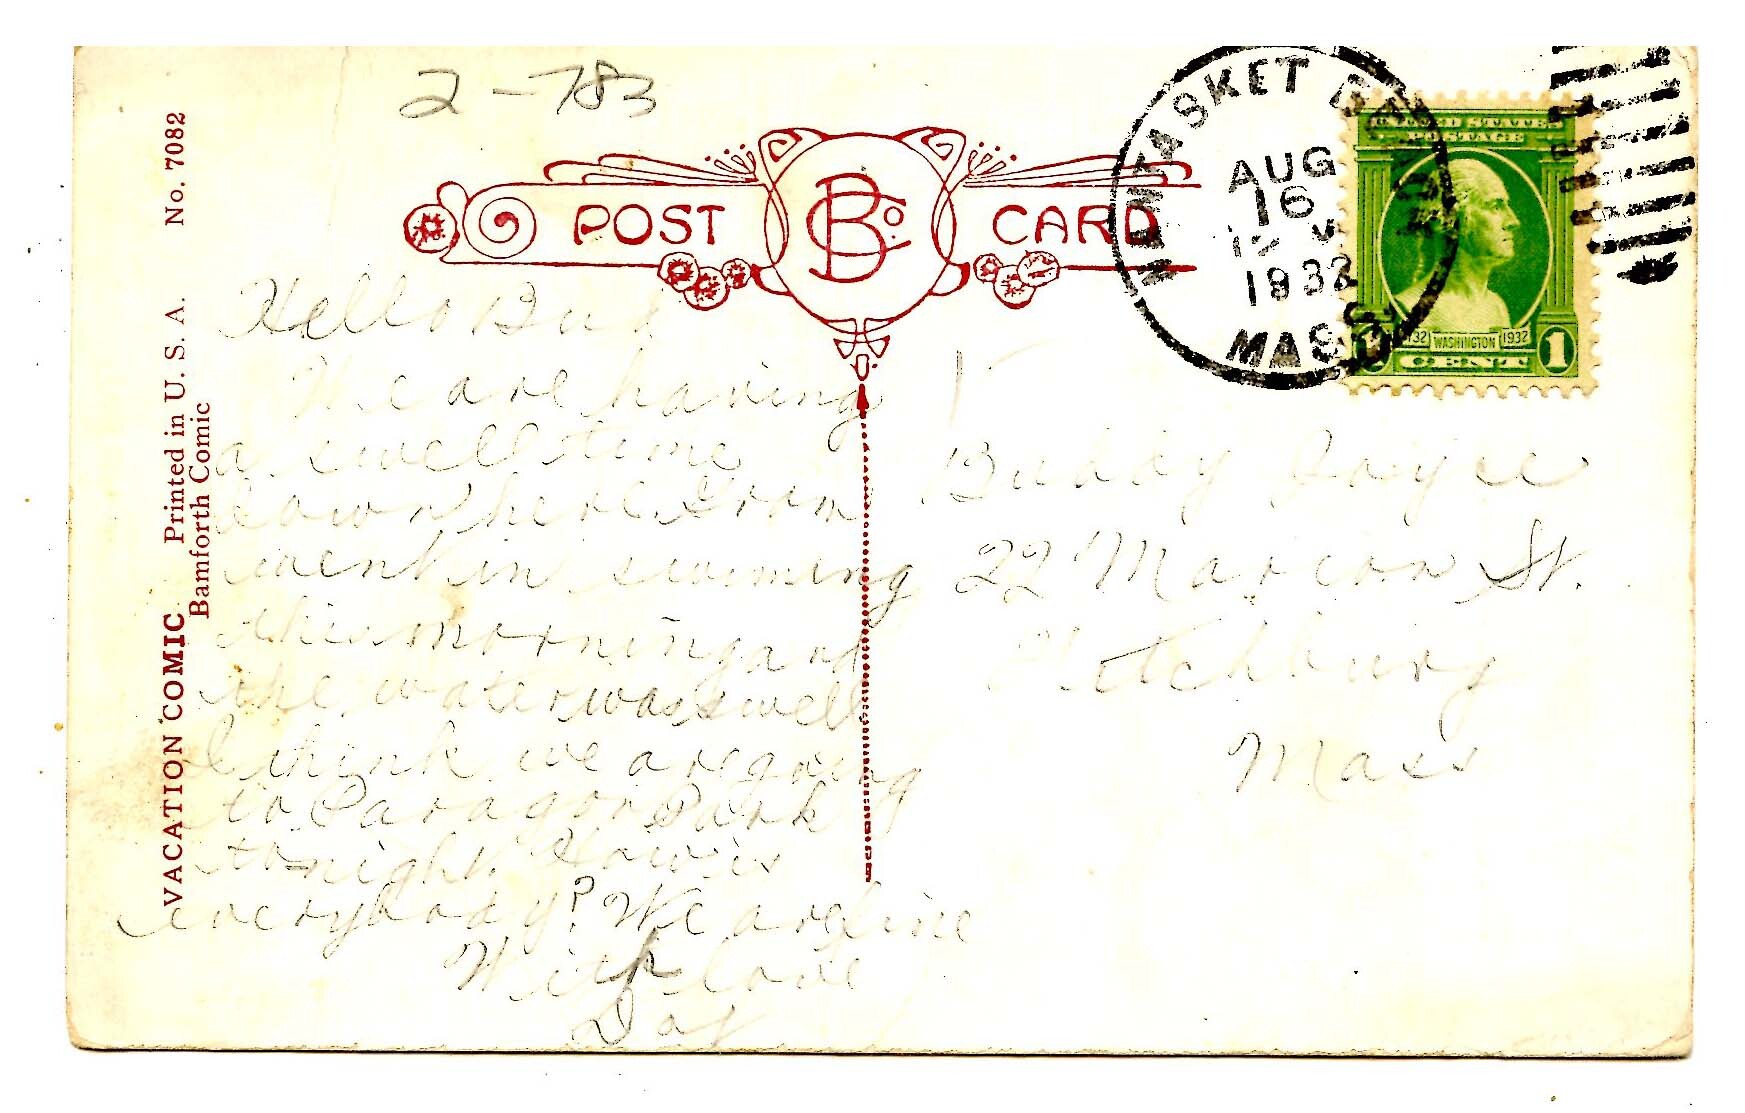 2-783
VACATION COMIC Printed in U. S. A. No. 7082
Bamforth Comic
POST BCo. CARD
NANTASKET
AUG
16
1932
MASS.
UNITED STATES
POSTAGE
1732 WASHINGTON 1932
1 CENT 1
Hello Bud
We are having
a swell time
down here. Gram
went in swiming
this morning and
the water was swell
I think we are going
to Paragon Park
to-night. How is
everybody? We are fine
With love
Buddy Joyce
22 Marion St.
Fitchburg
Mass